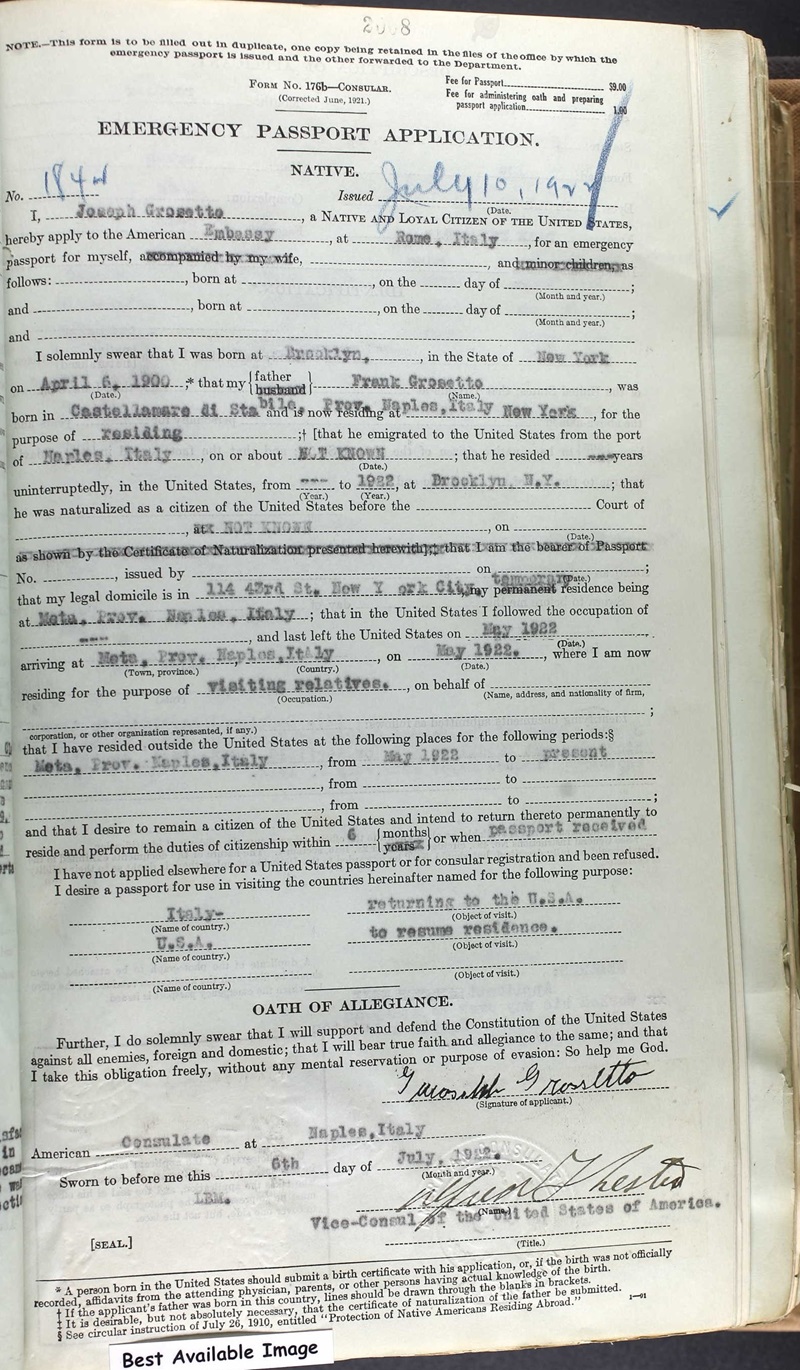 NOTE.—This form is to be filled out in duplicate, one copy being retained in the files of the office by which the
emergency passport is issued and the other forwarded to the Department.
FORM NO. 176b—CONSULAR.
(Corrected June, 1921.)
Fee for Passport $9.00
Fee for administering oath and preparing
passport application 1.00
EMERGENCY PASSPORT APPLICATION.
NATIVE.
No. Issued July 10, 1922
(Date.)
I, Joseph Grosetto, a NATIVE AND LOYAL CITIZEN OF THE UNITED STATES,
hereby apply to the American Embassy, at Rome, Italy, for an emergency
passport for myself, accompanied by my wife, , and minor children, as
follows: , born at , on the day of ;
(Month and year.)
and , born at , on the day of ;
(Month and year.)
and
I solemnly swear that I was born at Brooklyn, , in the State of New York
on April 6, 1900 ;* that my {father husband} Frank Grosetto, was
(Date.) (Name.)
born in Castellamare di Stabile, Prov. Naples, Italy and is now residing at New York, for the
purpose of residing ;† [that he emigrated to the United States from the port
of Naples, Italy, on or about NOT KNOWN ; that he resided --- years
(Date.)
uninterruptedly, in the United States, from --- to 1922, at Brooklyn N.Y. ; that
(Year.) (Year.)
he was naturalized as a citizen of the United States before the Court of
, at NOT KNOWN , on
(Date.)
as shown by the Certificate of Naturalization presented herewith];‡ that I am the bearer of Passport
No. , issued by on ;
(Date.)
that my legal domicile is in 114 43rd St. New Y ork City, my permanent temporary residence being
at Meta, Prov. Naples, Italy ; that in the United States I followed the occupation of
---- , and last left the United States on May 1922
(Date.)
arriving at Meta, Prov. Naples, Italy , on May 1922. , where I am now
(Town, province.) (Country.) (Date.)
residing for the purpose of visiting relatives. , on behalf of
(Occupation.) (Name, address, and nationality of firm,
;
corporation, or other organization represented, if any.)
that I have resided outside the United States at the following places for the following periods:§
Meta, Prov. Naples, Italy , from May 1922 to present
, from to
, from to ;
and that I desire to remain a citizen of the United States and intend to return thereto permanently to
reside and perform the duties of citizenship within 6 {months years} or when passport received
I have not applied elsewhere for a United States passport or for consular registration and been refused.
I desire a passport for use in visiting the countries hereinafter named for the following purpose:
Italy- returning to the U.S.A.
(Name of country.) (Object of visit.)
U.S.A. to resume residence.
(Name of country.) (Object of visit.)
(Name of country.) (Object of visit.)
OATH OF ALLEGIANCE.
Further, I do solemnly swear that I will support and defend the Constitution of the United States
against all enemies, foreign and domestic; that I will bear true faith and allegiance to the same; and that
I take this obligation freely, without any mental reservation or purpose of evasion: So help me God.
Grossetto
(Signature of applicant.)
American Consulate at Naples, Italy
Sworn to before me this 6th day of July, 1922.
(Month and year.)
LBM.
(Name.)
Vice-Consul of the United States of America.
[SEAL.]
(Title.)
* A person born in the United States should submit a birth certificate with his application, or, if the birth was not officially
recorded, affidavits from the attending physician, parents, or other persons having actual knowledge of the birth.
† If the applicant's father was born in this country, lines should be drawn through the blanks in brackets.
‡ It is desirable, but not absolutely necessary, that the certificate of naturalization of the father be submitted.
§ See circular instruction of July 26, 1910, entitled "Protection of Native Americans Residing Abroad." 1—91
Best Available Image